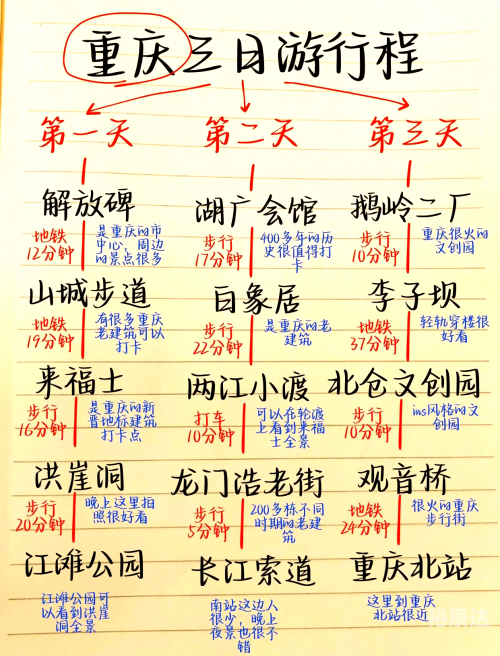 重庆三日游行程
第一天
第二天
第三天
解放碑
地铁
12分钟
是重庆的市
中心，周边
的景点很多
山城步道
地铁
19分钟
有很多重庆
老建筑可以
打卡
来福士
步行
16分钟
是重庆的新
晋地标建筑
打卡点
洪崖洞
步行
20分钟
晚上这里拍
照很好看
江滩公园
江滩公园可
以看到洪崖
洞全景
湖广会馆
步行
17分钟
400多年的历
史很值得打
卡
白象居
步行
22分钟
是重庆的老
建筑
两江小渡
打车
10分钟
可以在轮渡
上看到来福
士全景
龙门浩老街
步行
5分钟
200多栋不同
时期的老建
筑
长江索道
南站这边人
很少，晚上
夜景也很不
错
鹅岭二厂
步行
10分钟
重庆很火的
文创园
李子坝
地铁
37分钟
轻轨穿楼很
好看
北仓文创园
步行
10分钟
ins风格的文
创园
观音桥
地铁
24分钟
很火的重庆
步行街
重庆北站
这里到重庆
北站很近